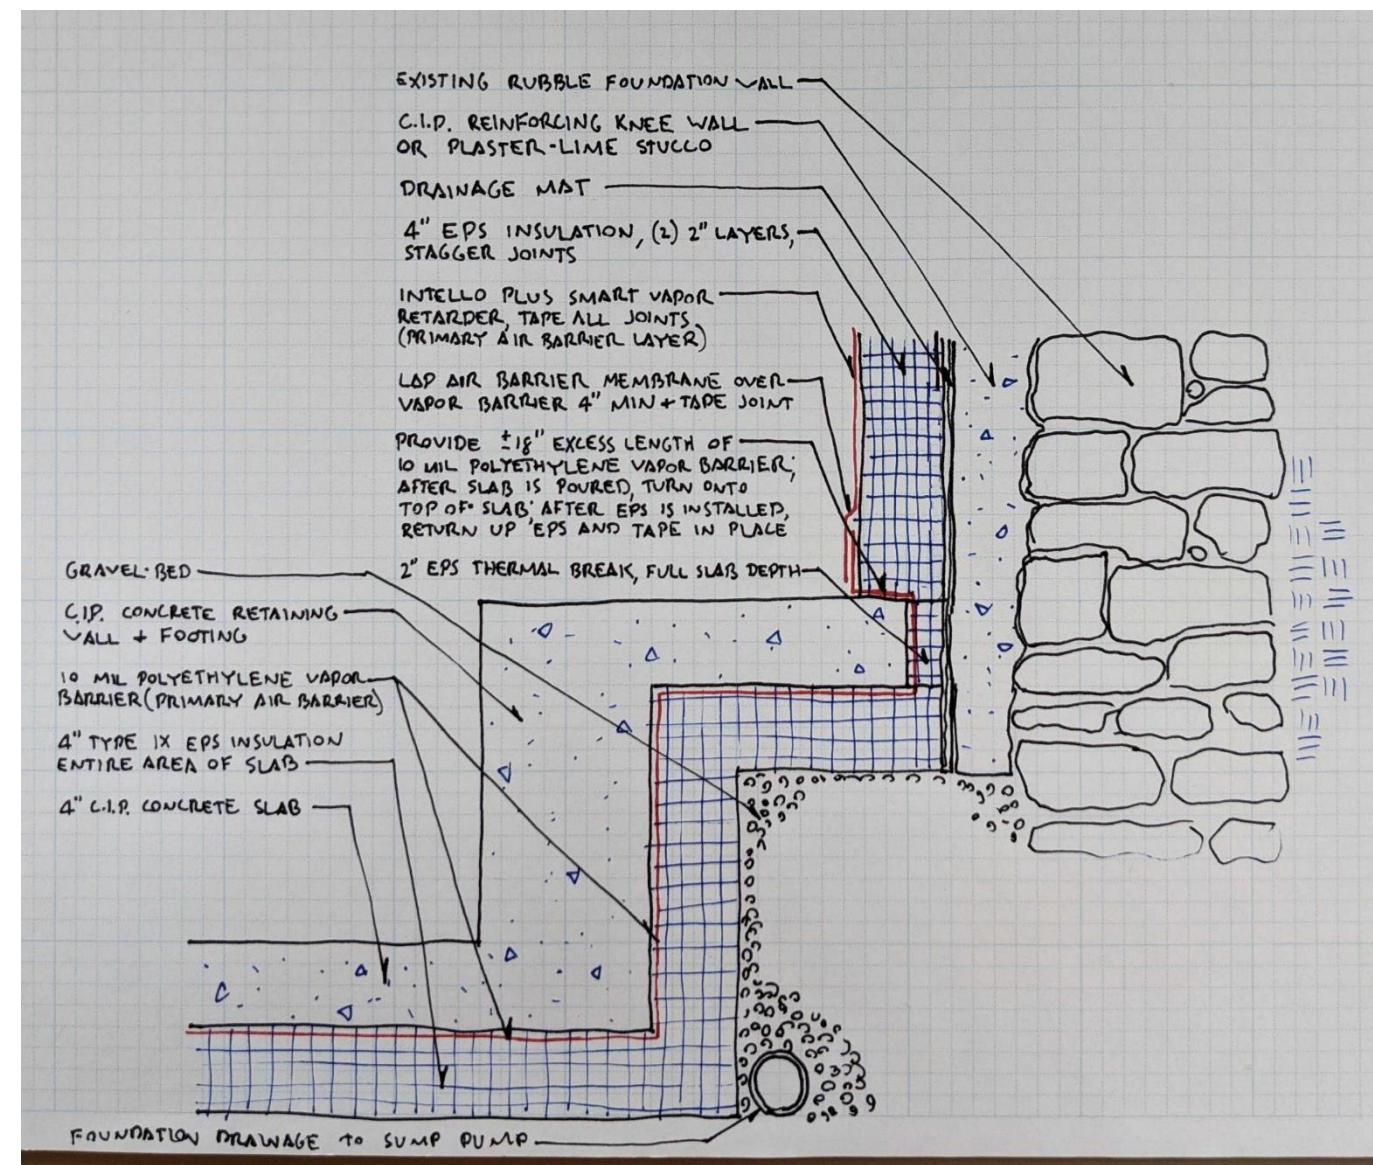 EXISTING RUBBLE FOUNDATION WALL
C.I.P. REINFORCING KNEE WALL
OR PLASTER-LIME STUCCO
DRAINAGE MAT
4" EPS INSULATION, (2) 2" LAYERS,
STAGGER JOINTS
INTELLO PLUS SMART VAPOR
RETARDER, TAPE ALL JOINTS
(PRIMARY AIR BARRIER LAYER)
LAP AIR BARRIER MEMBRANE OVER
VAPOR BARRIER 4" MIN + TAPE JOINT
PROVIDE ±18" EXCESS LENGTH OF
10 MIL POLYETHYLENE VAPOR BARRIER;
AFTER SLAB IS POURED, TURN ONTO
TOP OF SLAB; AFTER EPS IS INSTALLED,
RETURN UP EPS AND TAPE IN PLACE
2" EPS THERMAL BREAK, FULL SLAB DEPTH
GRAVEL BED
C.I.P. CONCRETE RETAINING
WALL + FOOTING
10 MIL POLYETHYLENE VAPOR
BARRIER (PRIMARY AIR BARRIER)
4" TYPE IX EPS INSULATION
ENTIRE AREA OF SLAB
4" C.I.P. CONCRETE SLAB
FOUNDATION DRAINAGE TO SUMP PUMP